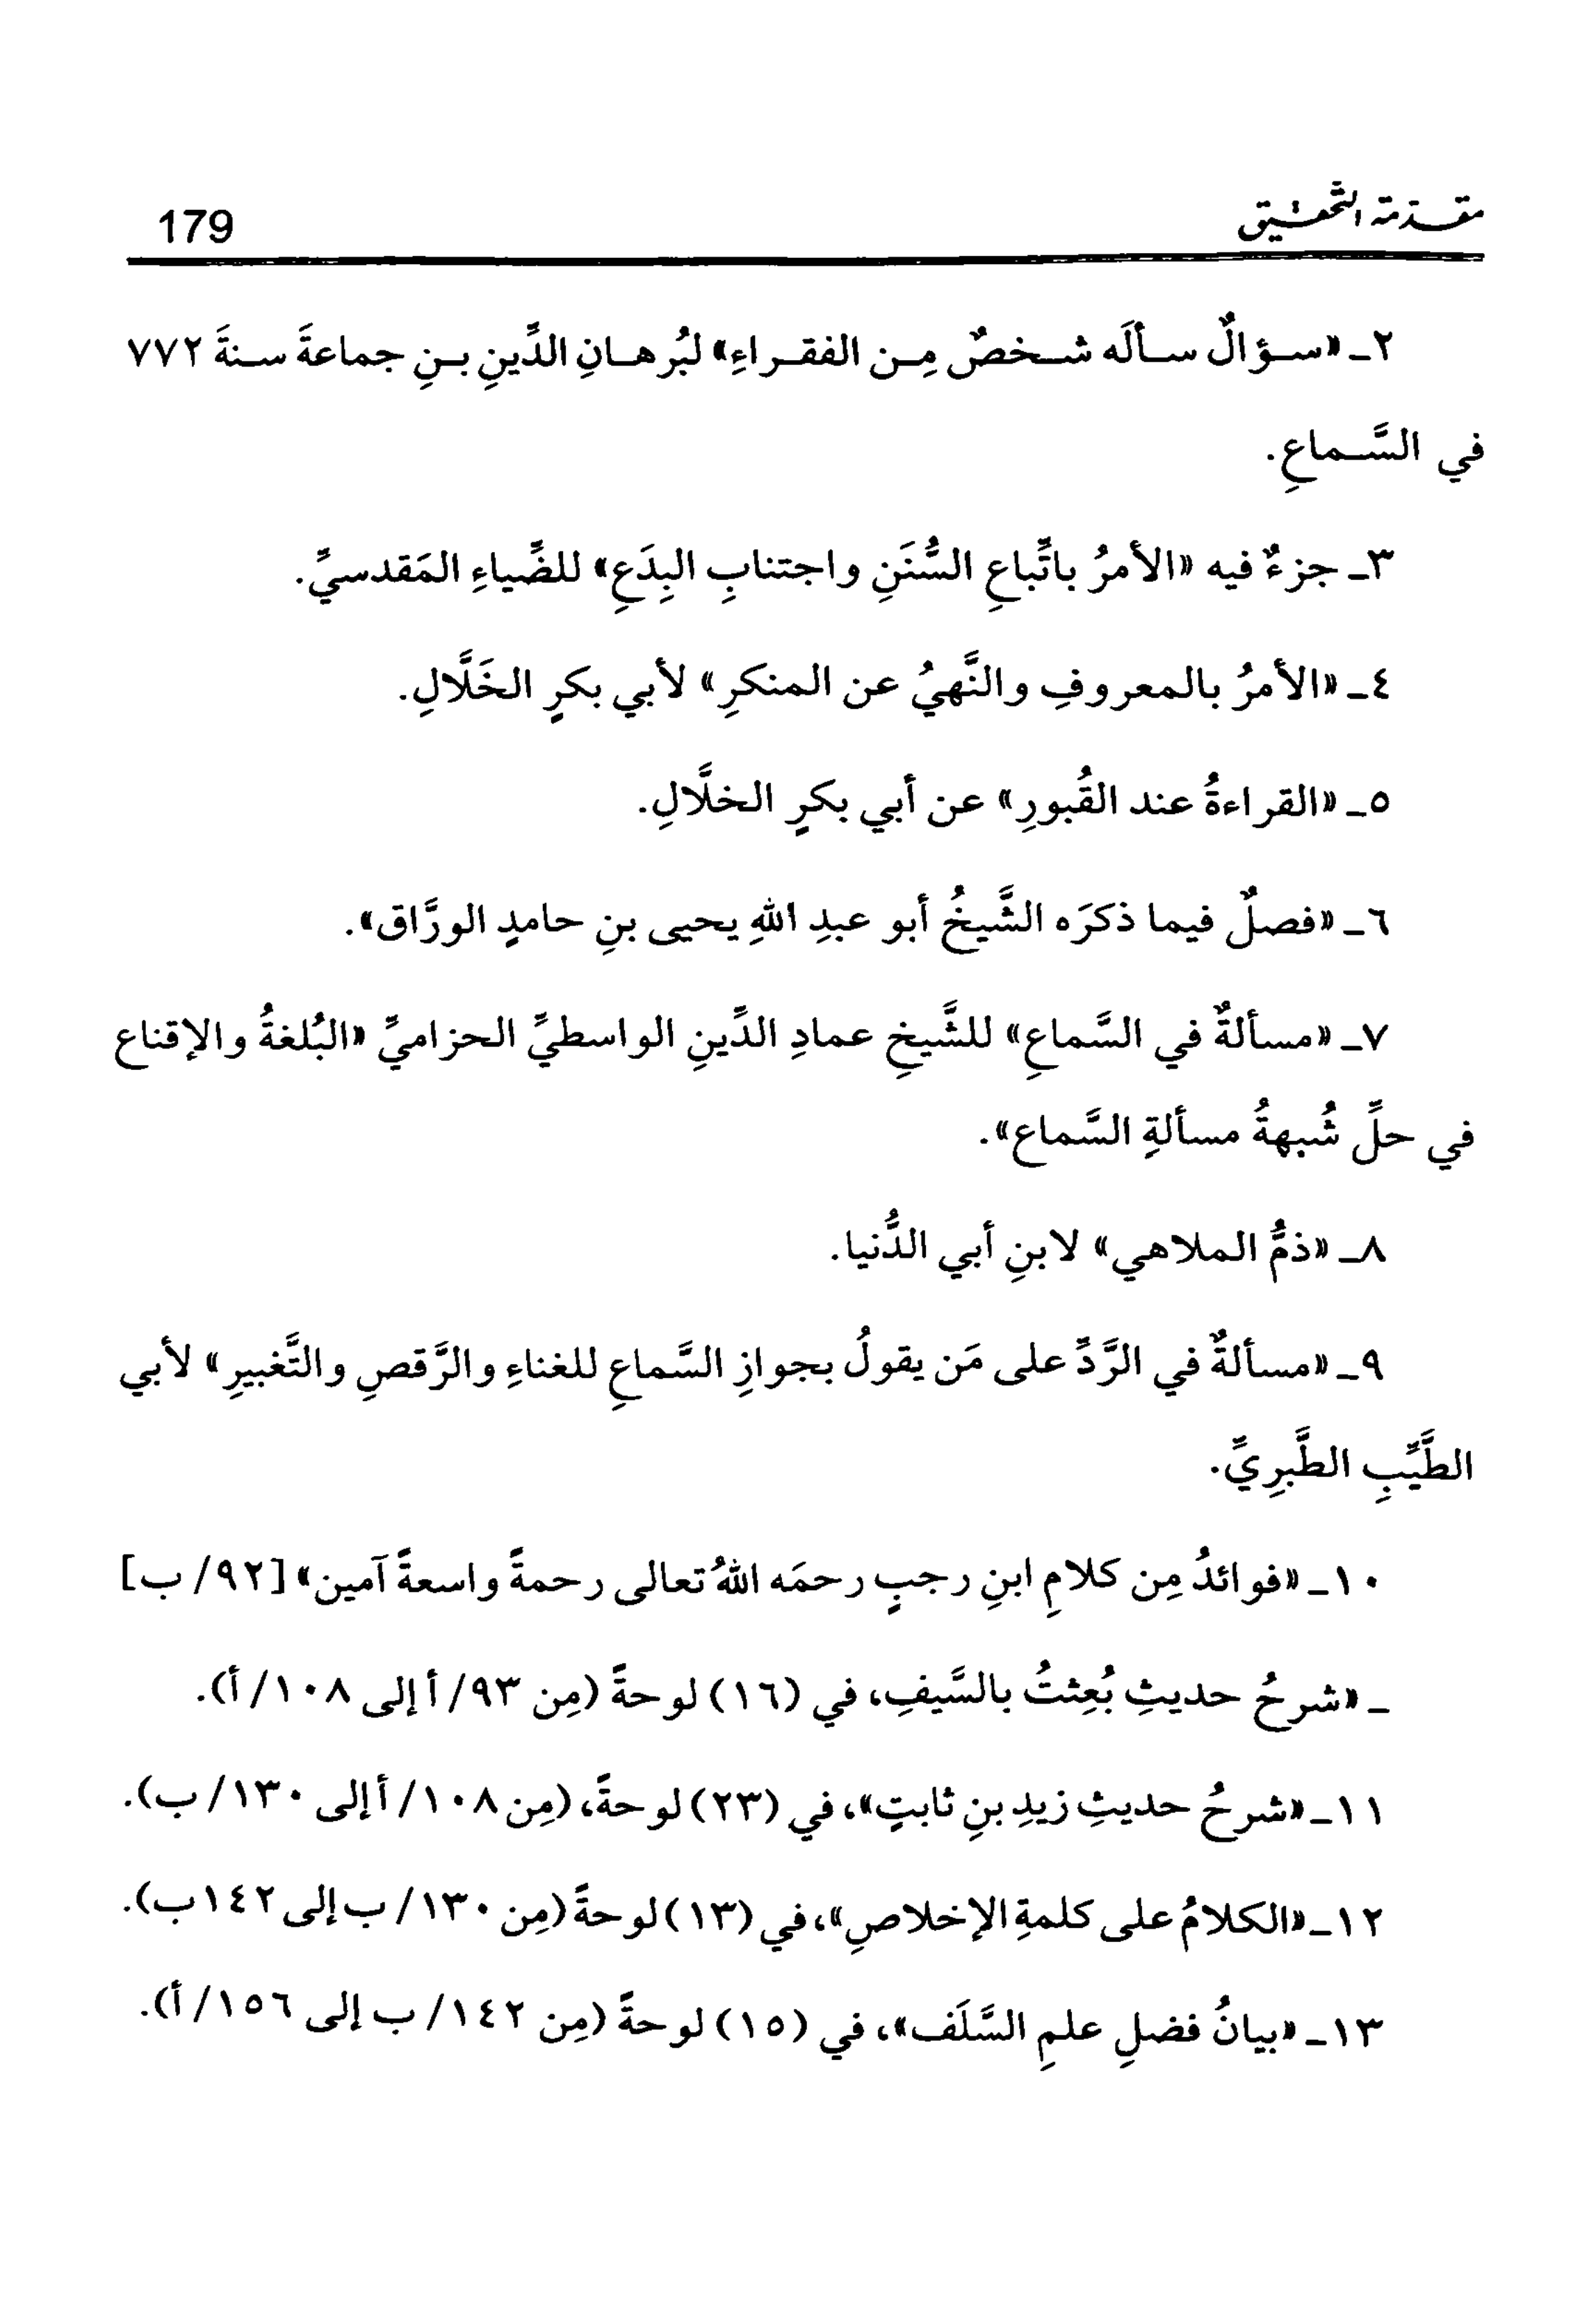 مقدمة التحقيق
179
٢ـ «سؤالٌ سألَه شخصٌ مِن الفقراءِ» لبُرهانِ الدِّينِ بنِ جماعةَ سنةَ ٧٧٢
في السَّماعِ.
٣ـ جزءٌ فيه «الأمرُ باتِّباعِ السُّنَنِ واجتنابِ البِدَعِ» للضِّياءِ المَقدسيِّ.
٤ـ «الأمرُ بالمعروفِ والنَّهيُ عن المنكرِ» لأبي بكرٍ الخَلَّالِ.
٥ـ «القراءةُ عند القُبورِ» عن أبي بكرٍ الخلَّالِ.
٦ـ «فصلٌ فيما ذكرَه الشَّيخُ أبو عبدِ اللهِ يحيى بنِ حامدٍ الورَّاق».
٧ـ «مسألةٌ في السَّماعِ» للشَّيخِ عمادِ الدِّينِ الواسطيِّ الحزاميِّ «البُلغةُ والإقناع
في حلِّ شُبهةُ مسألةِ السَّماع».
٨ـ «ذمُّ الملاهي» لابنِ أبي الدُّنيا.
٩ـ «مسألةٌ في الرَّدِّ على مَن يقولُ بجوازِ السَّماعِ للغناءِ والرَّقصِ والتَّغبيرِ» لأبي
الطَّيِّبِ الطَّبرِيِّ.
١٠ـ «فوائدُ مِن كلامِ ابنِ رجبٍ رحمَه اللهُ تعالى رحمةً واسعةً آمين» [٩٢/ ب]
ـ «شرحُ حديثِ بُعِثتُ بالسَّيفِ، في (١٦) لوحةً (مِن ٩٣/ أ إلى ١٠٨/ أ).
١١ـ «شرحُ حديثِ زيدِ بنِ ثابتٍ»، في (٢٣) لوحةً، (مِن ١٠٨/ أ إلى ١٣٠/ ب).
١٢ـ «الكلامُ على كلمةِ الإخلاصِ»، في (١٣) لوحةً (مِن ١٣٠/ ب إلى ١٤٢ب).
١٣ـ «بيانُ فضلِ علمِ السَّلَف»، في (١٥) لوحةً (مِن ١٤٢/ ب إلى ١٥٦/ أ).